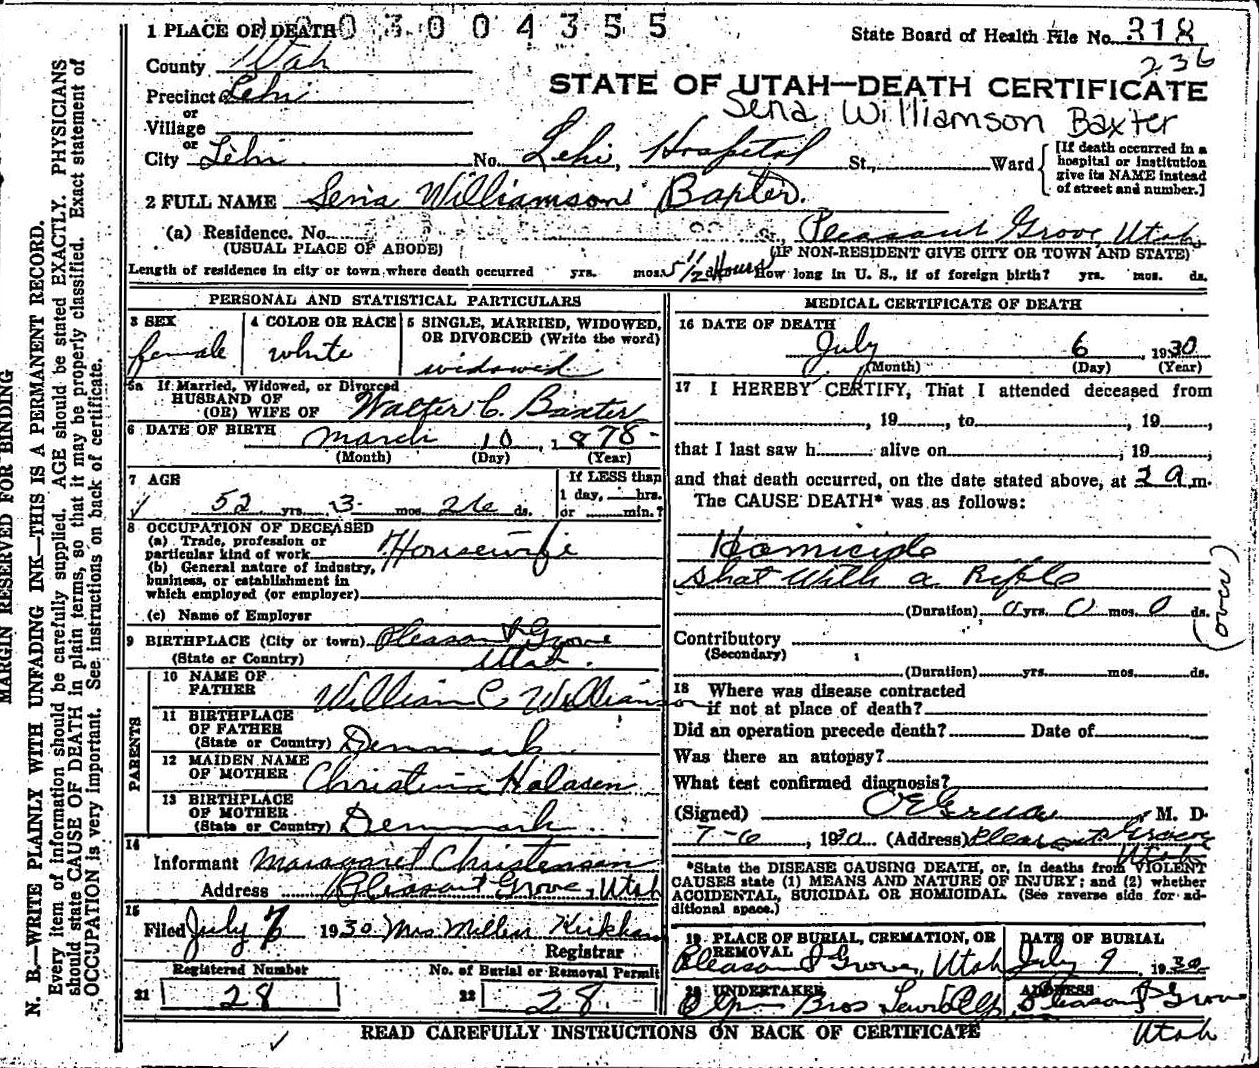 1 PLACE OF DEATH 003004355
State Board of Health File No. 318
236
County Utah
STATE OF UTAH—DEATH CERTIFICATE
Precinct Lehi
Sena Williamson Baxter
or
Village
or
City Lehi No. Lehi, Hospital St., Ward
[If death occurred in a
hospital or institution
give its NAME instead
of street and number.]
2 FULL NAME Sena Williamson Baxter.
(a) Residence. No. St., Pleasant Grove, Utah
(USUAL PLACE OF ABODE) (IF NON-RESIDENT GIVE CITY OR TOWN AND STATE)
Length of residence in city or town where death occurred yrs. mos. 5 1/2 Hours How long in U. S., if of foreign birth? yrs. mos. ds.
PERSONAL AND STATISTICAL PARTICULARS
3 SEX
female
4 COLOR OR RACE
white
5 SINGLE, MARRIED, WIDOWED,
OR DIVORCED (Write the word)
widowed
5a If Married, Widowed, or Divorced
HUSBAND OF
(OR) WIFE OF Walter C. Baxter
6 DATE OF BIRTH March 10, 1878
(Month) (Day) (Year)
7 AGE
52 yrs. 3 mos. 26 ds.
If LESS than
1 day, hrs.
or min.?
8 OCCUPATION OF DECEASED
(a) Trade, profession or
particular kind of work Housewife
(b) General nature of industry,
business, or establishment in
which employed (or employer)
(c) Name of Employer
9 BIRTHPLACE (City or town) Pleasant Grove
(State or Country) Utah.
PARENTS
10 NAME OF
FATHER William C. Williamson
11 BIRTHPLACE
OF FATHER
(State or Country) Denmark
12 MAIDEN NAME
OF MOTHER Christina
13 BIRTHPLACE
OF MOTHER
(State or Country) Denmark
14
Informant Margaret Christensen
Address Pleasant Grove, Utah
15
Filed July 7 1930 Mrs Kirkham
Registrar
Registered Number
21 28
No. of Burial or Removal Permit
22 28.
MEDICAL CERTIFICATE OF DEATH
16 DATE OF DEATH
July 6, 1930
(Month) (Day) (Year)
17 I HEREBY CERTIFY, That I attended deceased from
, 19 , to , 19 ,
that I last saw h alive on , 19 ,
and that death occurred, on the date stated above, at 2 a m.
The CAUSE DEATH* was as follows:
Homicide
shot with a Rifle
(Duration) 0 yrs. 0 mos. 0 ds.
(over)
Contributory
(Secondary)
(Duration) yrs. mos. ds.
18 Where was disease contracted
if not at place of death?
Did an operation precede death? Date of
Was there an autopsy?
What test confirmed diagnosis?
(Signed) M. D.
7-6, 1930 (Address) Pleasant Grove
Utah
*State the DISEASE CAUSING DEATH, or, in deaths from VIOLENT
CAUSES state (1) MEANS AND NATURE OF INJURY; and (2) whether
ACCIDENTAL, SUICIDAL OR HOMICIDAL. (See reverse side for ad-
ditional space.)
19 PLACE OF BURIAL, CREMATION, OR
REMOVAL
Pleasant Grove, Utah
DATE OF BURIAL
July 9, 1930
20 UNDERTAKER
Bros
ADDRESS
Pleasant Grove
Utah
READ CAREFULLY INSTRUCTIONS ON BACK OF CERTIFICATE
MARGIN RESERVED FOR BINDING
N. B.—WRITE PLAINLY WITH UNFADING INK—THIS IS A PERMANENT RECORD.
Every item of information should be carefully supplied. AGE should be stated EXACTLY. PHYSICIANS
should state CAUSE OF DEATH in plain terms, so that it may be properly classified. Exact statement of
OCCUPATION is very important. See instructions on back of certificate.